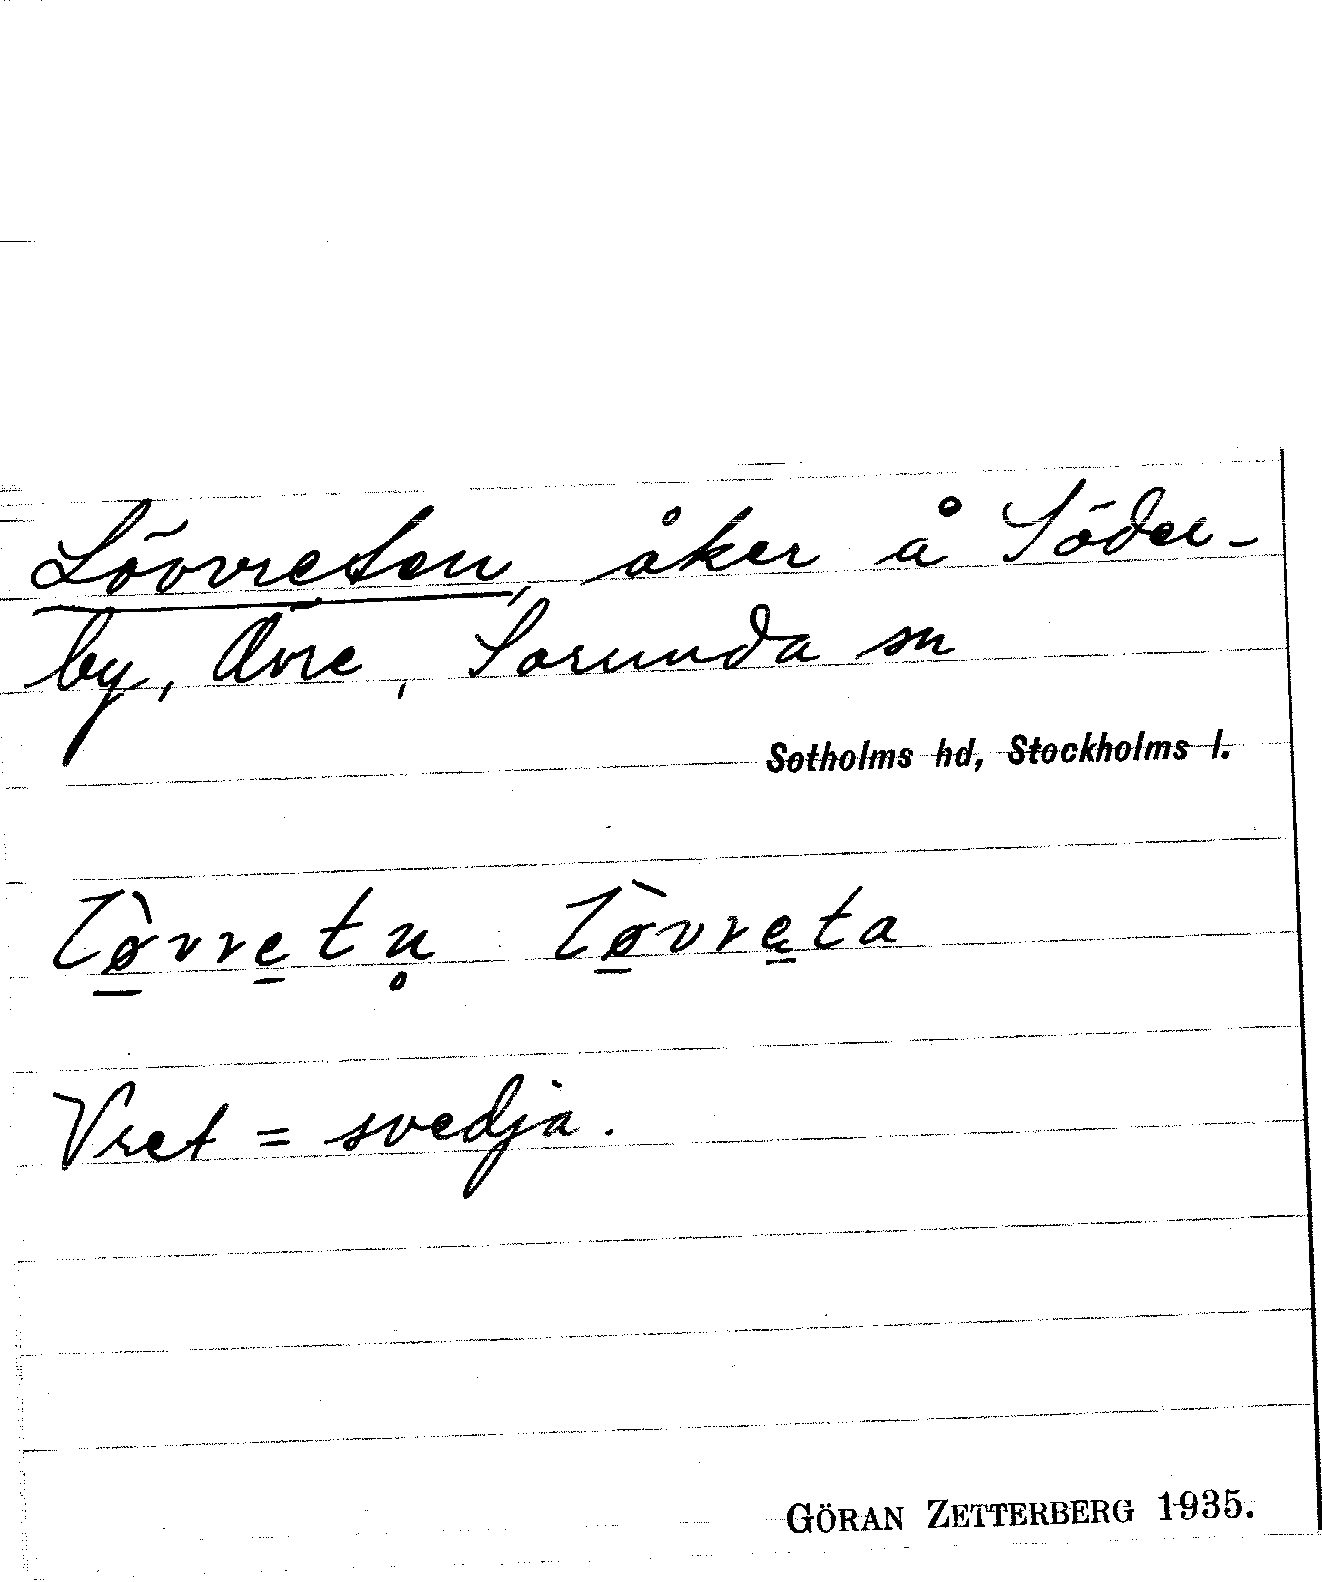 Lövvreten, åker å Söder-
by, Övre, Sorunda sn
Sotholms hd, Stockholms l.
lø̱̀vre̱tn̥ lø̱̀vre̱ta
Vret = svedja.
GÖRAN ZETTERBERG 1935.